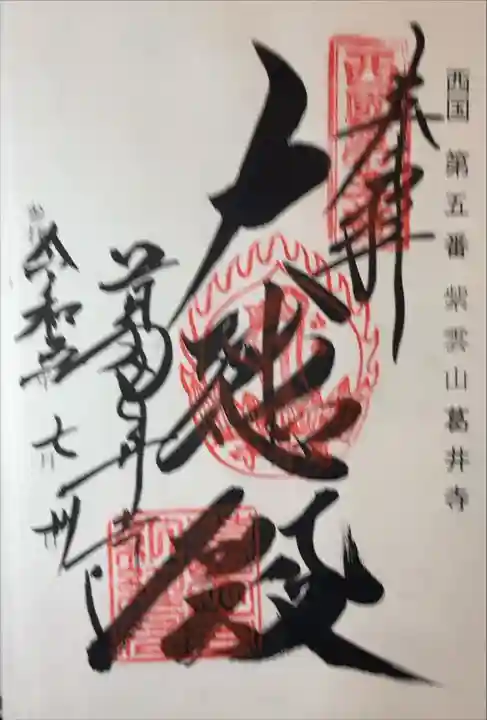 西国 第五番 紫雲山葛井寺
奉拝
大悲殿
葛井寺
令和 年 七月